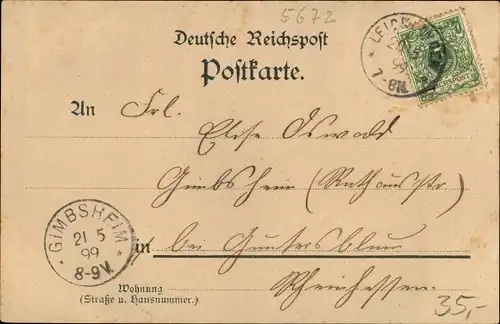 5672
Deutsche Reichspost
Postkarte.
An Frl.
Elise Oswald
Gimbsheim (Rathausstr)
in bei Guntersblum
Rheinhessen.
Wohnung
(Straße u. Hausnummer.)
GIMBSHEIM
21 5
99
8-9V.
99
7-8N.
35,-